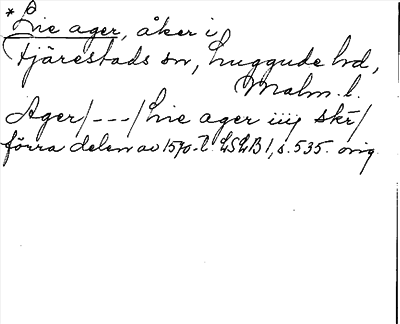 * Lie ager, åker i
Fjärestads sn, Luggude hd,
Malm. l.
Ager/---/Lie ager iiij skr/
förra delen av 1570-t. LSLB 1, s. 535. orig.